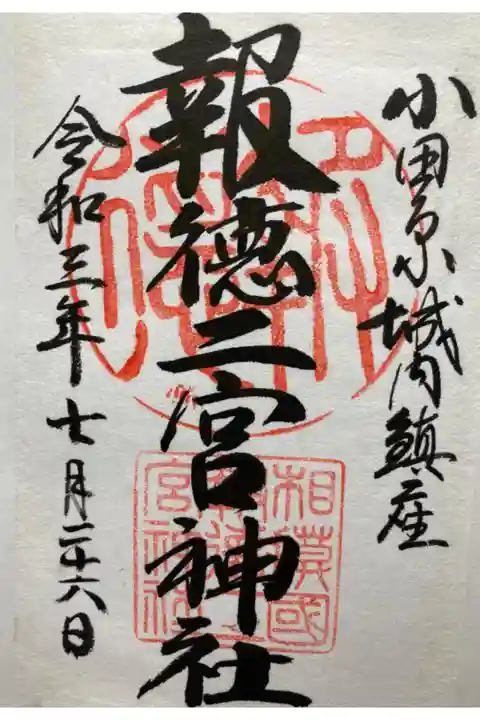 小田原城内鎮座
報徳二宮神社
相模國
報徳二
宮神社
令和三年七月二十六日